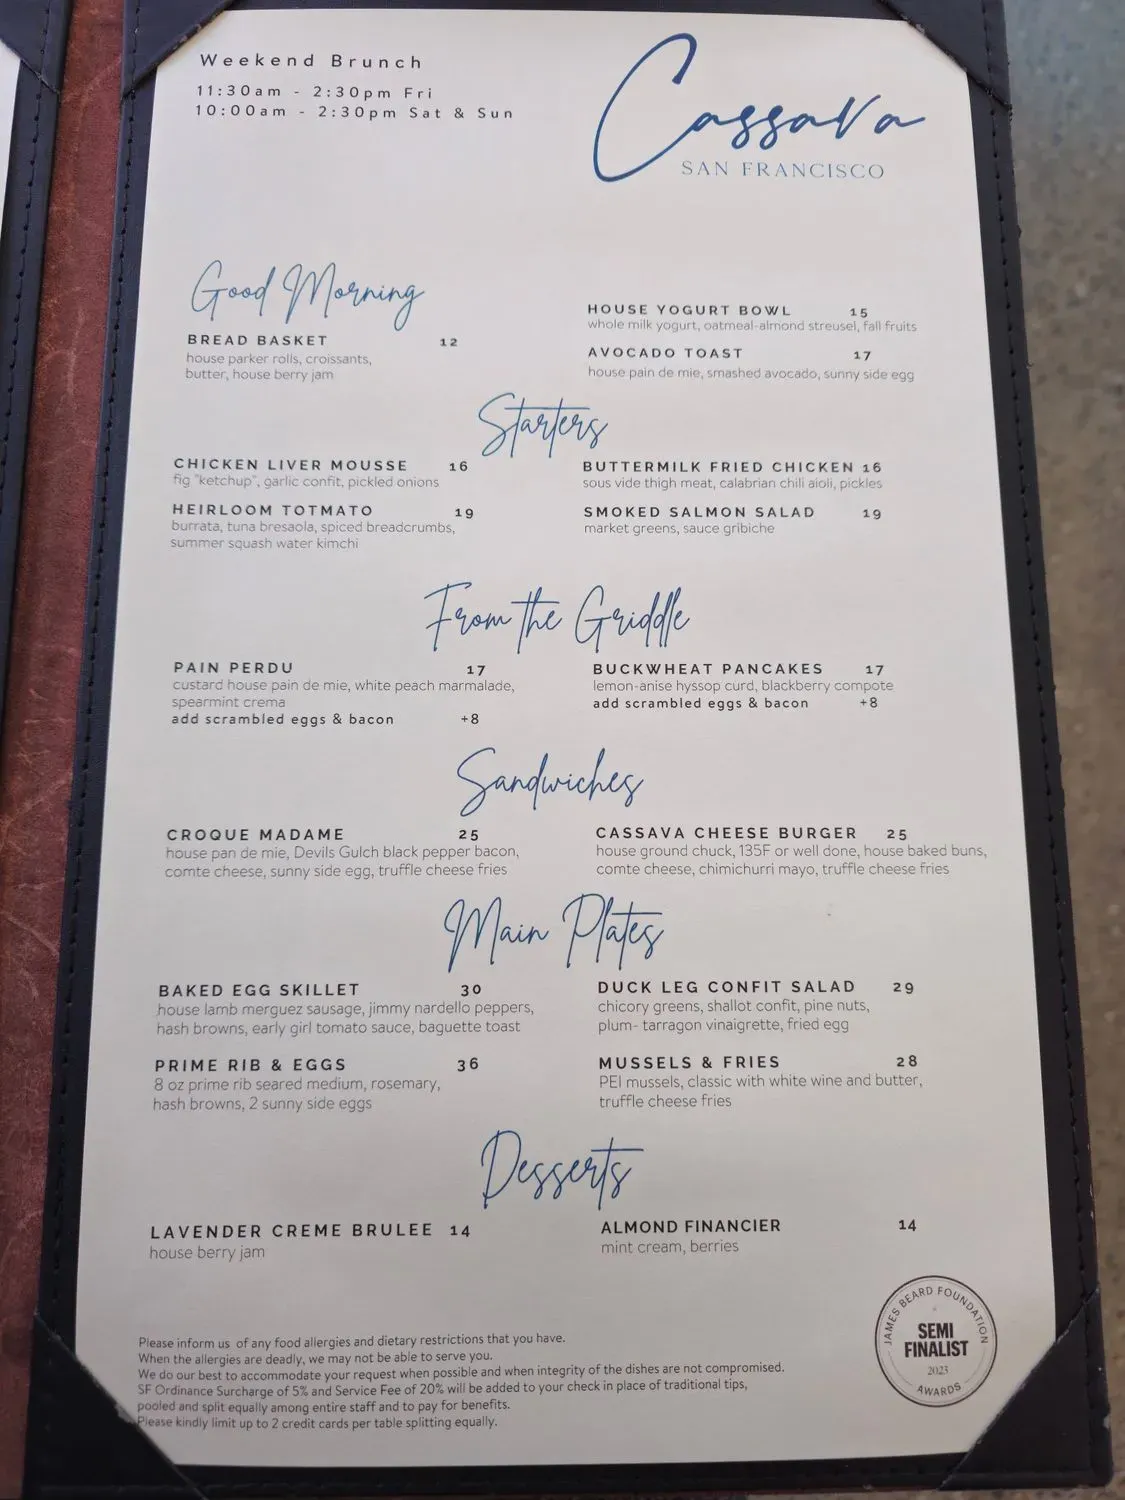 Weekend Brunch
11:30am - 2:30pm Fri
10:00am - 2:30pm Sat & Sun
Cassava
SAN FRANCISCO
Good Morning
BREAD BASKET 12
house parker rolls, croissants,
butter, house berry jam
HOUSE YOGURT BOWL 15
whole milk yogurt, oatmeal-almond streusel, fall fruits
AVOCADO TOAST 17
house pain de mie, smashed avocado, sunny side egg
Starters
CHICKEN LIVER MOUSSE 16
fig "ketchup", garlic confit, pickled onions
HEIRLOOM TOTMATO 19
burrata, tuna bresaola, spiced breadcrumbs,
summer squash water kimchi
BUTTERMILK FRIED CHICKEN 16
sous vide thigh meat, calabrian chili aioli, pickles
SMOKED SALMON SALAD 19
market greens, sauce gribiche
From the Griddle
PAIN PERDU 17
custard house pain de mie, white peach marmalade,
spearmint crema
add scrambled eggs & bacon +8
BUCKWHEAT PANCAKES 17
lemon-anise hyssop curd, blackberry compote
add scrambled eggs & bacon +8
Sandwiches
CROQUE MADAME 25
house pan de mie, Devils Gulch black pepper bacon,
comte cheese, sunny side egg, truffle cheese fries
CASSAVA CHEESE BURGER 25
house ground chuck, 135F or well done, house baked buns,
comte cheese, chimichurri mayo, truffle cheese fries
Main Plates
BAKED EGG SKILLET 30
house lamb merguez sausage, jimmy nardello peppers,
hash browns, early girl tomato sauce, baguette toast
PRIME RIB & EGGS 36
8 oz prime rib seared medium, rosemary,
hash browns, 2 sunny side eggs
DUCK LEG CONFIT SALAD 29
chicory greens, shallot confit, pine nuts,
plum- tarragon vinaigrette, fried egg
MUSSELS & FRIES 28
PEI mussels, classic with white wine and butter,
truffle cheese fries
Desserts
LAVENDER CREME BRULEE 14
house berry jam
ALMOND FINANCIER 14
mint cream, berries
Please inform us of any food allergies and dietary restrictions that you have.
When the allergies are deadly, we may not be able to serve you.
We do our best to accommodate your request when possible and when integrity of the dishes are not compromised.
SF Ordinance Surcharge of 5% and Service Fee of 20% will be added to your check in place of traditional tips,
pooled and split equally among entire staff and to pay for benefits.
Please kindly limit up to 2 credit cards per table splitting equally.
JAMES BEARD FOUNDATION
SEMI
FINALIST
2023
AWARDS